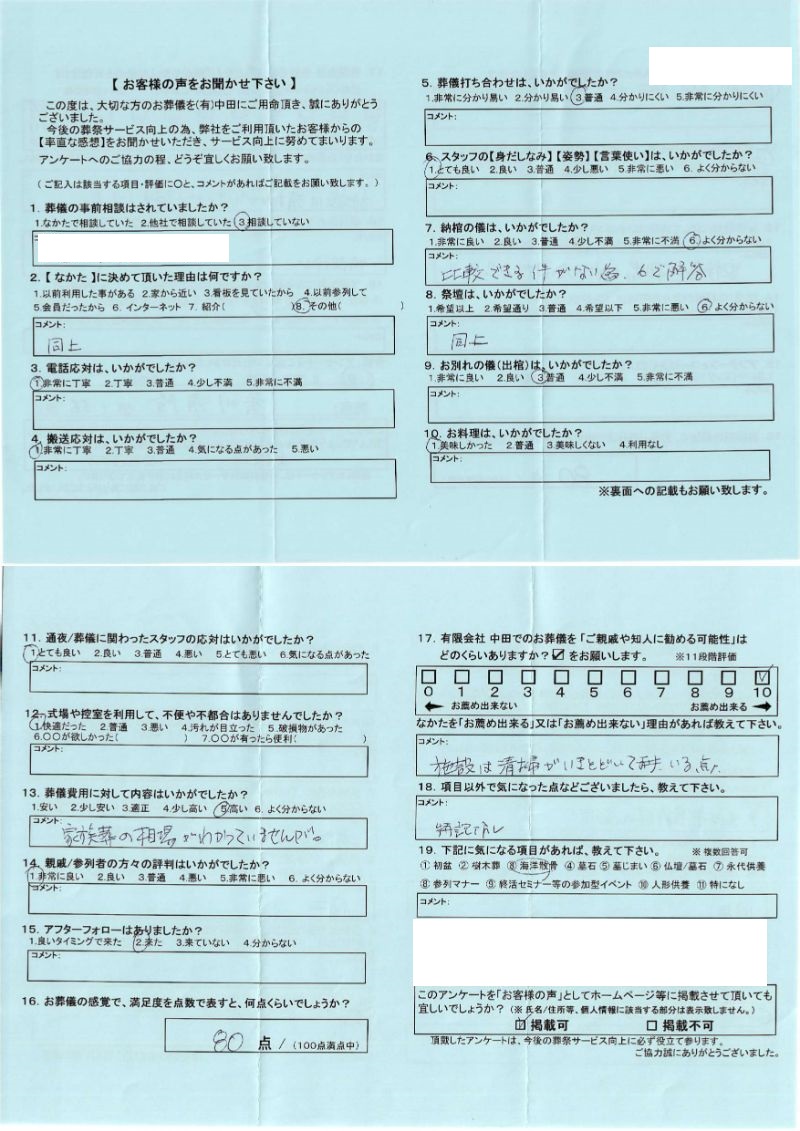 【 お客様の声をお聞かせ下さい 】
この度は、大切な方のお葬儀を(有)中田にご用命頂き、誠にありがとう
ございました。
今後の葬祭サービス向上の為、弊社をご利用頂いたお客様からの
【率直な感想】をお聞かせいただき、サービス向上に努めてまいります。
アンケートへのご協力の程、どうぞ宜しくお願い致します。
( ご記入は該当する項目・評価に〇と、コメントがあればご記載をお願い致します。 )
1. 葬儀の事前相談はされていましたか?
1.なかたで相談していた 2.他社で相談していた 3.相談していない
2.【 なかた 】に決めて頂いた理由は何ですか?
1.以前利用した事がある 2.家から近い 3.看板を見ていたから 4.以前参列して
5.会員だったから 6. インターネット 7. 紹介( )8.その他( )
コメント:
同上
3. 電話応対は、いかがでしたか?
1.非常に丁寧 2.丁寧 3.普通 4.少し不満 5.非常に不満
コメント:
4. 搬送応対は、いかがでしたか?
1.非常に丁寧 2.丁寧 3.普通 4.気になる点があった 5.悪い
コメント:
5. 葬儀打ち合わせは、いかがでしたか?
1.非常に分かり易い 2.分かり易い 3.普通 4.分かりにくい 5.非常に分かりにくい
コメント:
6. スタッフの【身だしなみ】【姿勢】【言葉使い】は、いかがでしたか?
1.とても良い 2.良い 3.普通 4.少し悪い 5.非常に悪い 6. よく分からない
コメント:
7. 納棺の儀は、いかがでしたか?
1.非常に良い 2.良い 3.普通 4.少し不満 5.非常に不満 6. よく分からない
コメント:
比較できる件がない為、6で解答
8. 祭壇は、いかがでしたか?
1.希望以上 2.希望通り 3.普通 4.希望以下 5.非常に悪い 6 よく分からない
コメント:
同上
9. お別れの儀(出棺)は、いかがでしたか?
1.非常に良い 2.良い 3.普通 4.少し不満 5.非常に不満
コメント:
10. お料理は、いかがでしたか?
1.美味しかった 2.普通 3.美味しくない 4.利用なし
コメント:
※裏面への記載もお願い致します。
11. 通夜/葬儀に関わったスタッフの応対はいかがでしたか?
1.とても良い 2.良い 3.普通 4.悪い 5.とても悪い 6.気になる点があった
コメント:
12. 式場や控室を利用して、不便や不都合はありませんでしたか?
1.快適だった 2.普通 3.悪い 4.汚れが目立った 5.破損物があった
6.〇〇が欲しかった( ) 7.〇〇が有ったら便利( )
コメント:
13. 葬儀費用に対して内容はいかがでしたか?
1.安い 2.少し安い 3.適正 4.少し高い 5.高い 6. よく分からない
コメント:
家族葬の相場がわかっていませんが。
14. 親戚/参列者の方々の評判はいかがでしたか?
1.非常に良い 2.良い 3.普通 4.悪い 5.非常に悪い 6. よく分からない
コメント:
15. アフターフォローはありましたか?
1.良いタイミングで来た 2.来た 3.来ていない 4.分からない
コメント:
16. お葬儀の感覚で、満足度を点数で表すと、何点くらいでしょうか?
80 点 / (100点満点中)
17. 有限会社 中田でのお葬儀を 「ご親戚や知人に勧める可能性」は
どのくらいありますか?☑をお願いします。 ※11段階評価
0 1 2 3 4 5 6 7 8 9 10
お薦め出来ない お薦め出来る
なかたを「お薦め出来る」又は「お薦め出来ない」理由があれば教えて下さい。
コメント:
施設は清掃がいきとどいて
いる点。
18. 項目以外で気になった点などございましたら、教えて下さい。
コメント:
特記なし
19. 下記に気になる項目があれば、教えて下さい。 ※ 複数回答可
① 初盆 ② 樹木葬 ③ 海洋散骨 ④ 墓石 ⑤ 墓じまい ⑥ 仏壇/墓石 ⑦ 永代供養
⑧ 参列マナー ⑨ 終活セミナー等の参加型イベント ⑩ 人形供養 ⑪ 特になし
コメント:
このアンケートを「お客様の声」としてホームページ等に掲載させて頂いても
宜しいでしょうか? (※ 氏名/住所等、個人情報に該当する部分は表示致しません。)
☑ 掲載可 □ 掲載不可
頂戴したアンケートは、今後の葬祭サービス向上に必ず役立て参ります。
ご協力誠にありがとうございました。